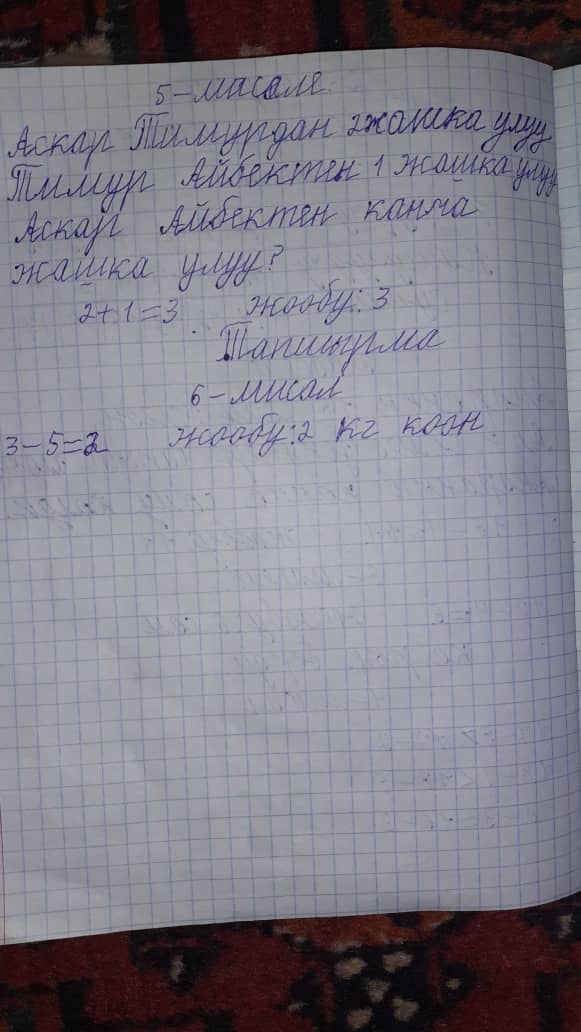 5-масале
Аскар Тимурдан 2 жашка улуу
Тимур Айбектен 1 жашка улуу
Аскар Айбектен канча
жашка улуу?
2+1=3 жообу: 3
Тапшырма
6-мисал
3-5=2 жообу: 2 кг коон